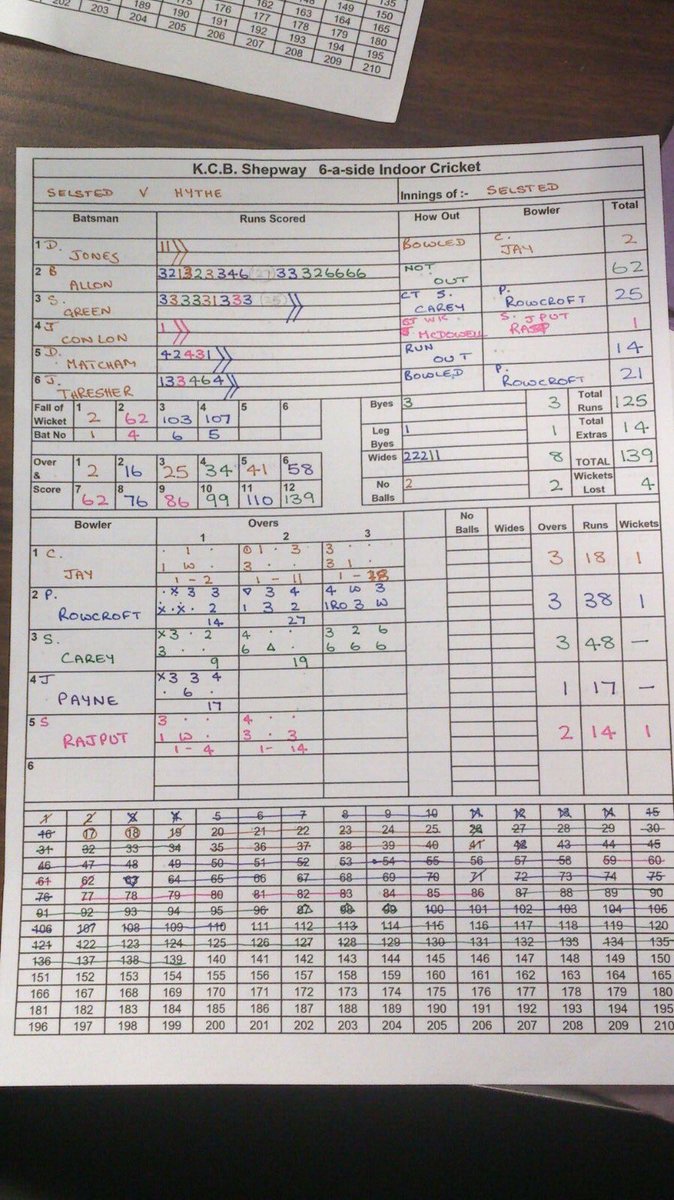 202 203 204 189 190 205 175 176 191 206 177 192 207 162 163 178 193 208 148 149 164 179 194 209 135 150 165 180 195 210
K.C.B. Shepway 6-a-side Indoor Cricket
SELSTED V HYTHE Innings of :- SELSTED
Batsman Runs Scored How Out Bowler Total
1 D. JONES 11 BOWLED C. JAY 2
2 B ALLON 321323346 (27) 33326666 NOT OUT 62
3 S. GREEN 333331333 (25) CT S. CAREY P. ROWCROFT 25
4 J CONLON 1 ST WK J McDOWELL S. RAJPUT 1
5 D. MATCHAM 42431 RUN OUT 14
6 J. THRESHER 133464 BOWLED P. ROWCROFT 21
Fall of Wicket 1 2 2 62 3 103 4 107 5 6
Bat No 1 4 6 5
Byes 3 3 Total Runs 125
Leg Byes 1 1 Total Extras 14
Wides 22211 8 TOTAL 139
No Balls 2 2 Wickets Lost 4
Over & Score 1 2 2 16 3 25 4 34 5 41 6 58
7 62 8 76 9 86 10 99 11 110 12 139
Bowler Overs No Balls Wides Overs Runs Wickets
1 2 3
1 C. JAY 3 18 1
· 1 · 1 · 3 3 · ·
1 W · 3 · · 3 1 ·
1-2 1-11 1-18
2 P. ROWCROFT 3 38 1
· x 3 3 3 4 4 W 3
x · x · 2 1 3 2 1RO 3 W
14 27
3 S. CAREY 3 48 –
x 3 · 2 4 · · 3 2 6
3 · · 6 · 6 6 6
9 19
4 J PAYNE 1 17 –
x 3 3 4
· 6 ·
17
5 S RAJPUT 2 14 1
3 · · 4 · ·
1 W · 3 · 3
1-4 1-14
6
1 2 3 4 5 6 7 8 9 10 11 12 13 14 15
16 17 18 19 20 21 22 23 24 25 26 27 28 29 30
31 32 33 34 35 36 37 38 39 40 41 42 43 44 45
46 47 48 49 50 51 52 53 54 55 56 57 58 59 60
61 62 63 64 65 66 67 68 69 70 71 72 73 74 75
76 77 78 79 80 81 82 83 84 85 86 87 88 89 90
91 92 93 94 95 96 97 98 99 100 101 102 103 104 105
106 107 108 109 110 111 112 113 114 115 116 117 118 119 120
121 122 123 124 125 126 127 128 129 130 131 132 133 134 135
136 137 138 139 140 141 142 143 144 145 146 147 148 149 150
151 152 153 154 155 156 157 158 159 160 161 162 163 164 165
166 167 168 169 170 171 172 173 174 175 176 177 178 179 180
181 182 183 184 185 186 187 188 189 190 191 192 193 194 195
196 197 198 199 200 201 202 203 204 205 206 207 208 209 210